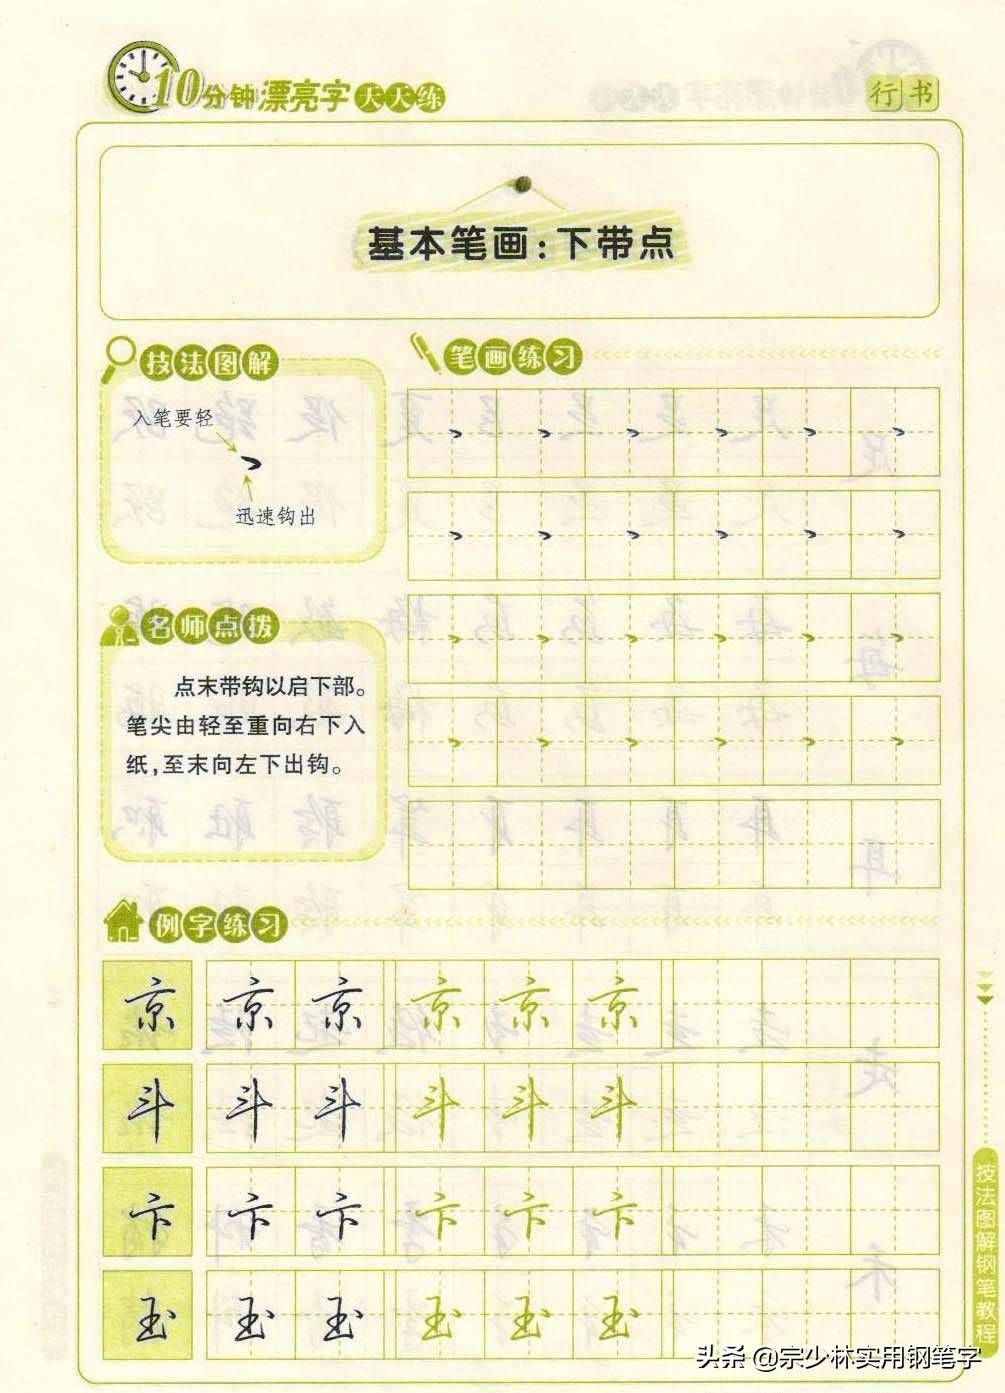 10分钟漂亮字天天练
行书
基本笔画:下带点
技法图解
入笔要轻
迅速钩出
笔画练习
名师点拨
点末带钩以启下部。
笔尖由轻至重向右下入
纸,至末向左下出钩。
例字练习
京 京 京 京 京 京
斗 斗 斗 斗 斗 斗
卞 卞 卞 卞 卞 卞
玉 玉 玉 玉 玉 玉
技法图解钢笔教程
头条 @宗少林实用钢笔字